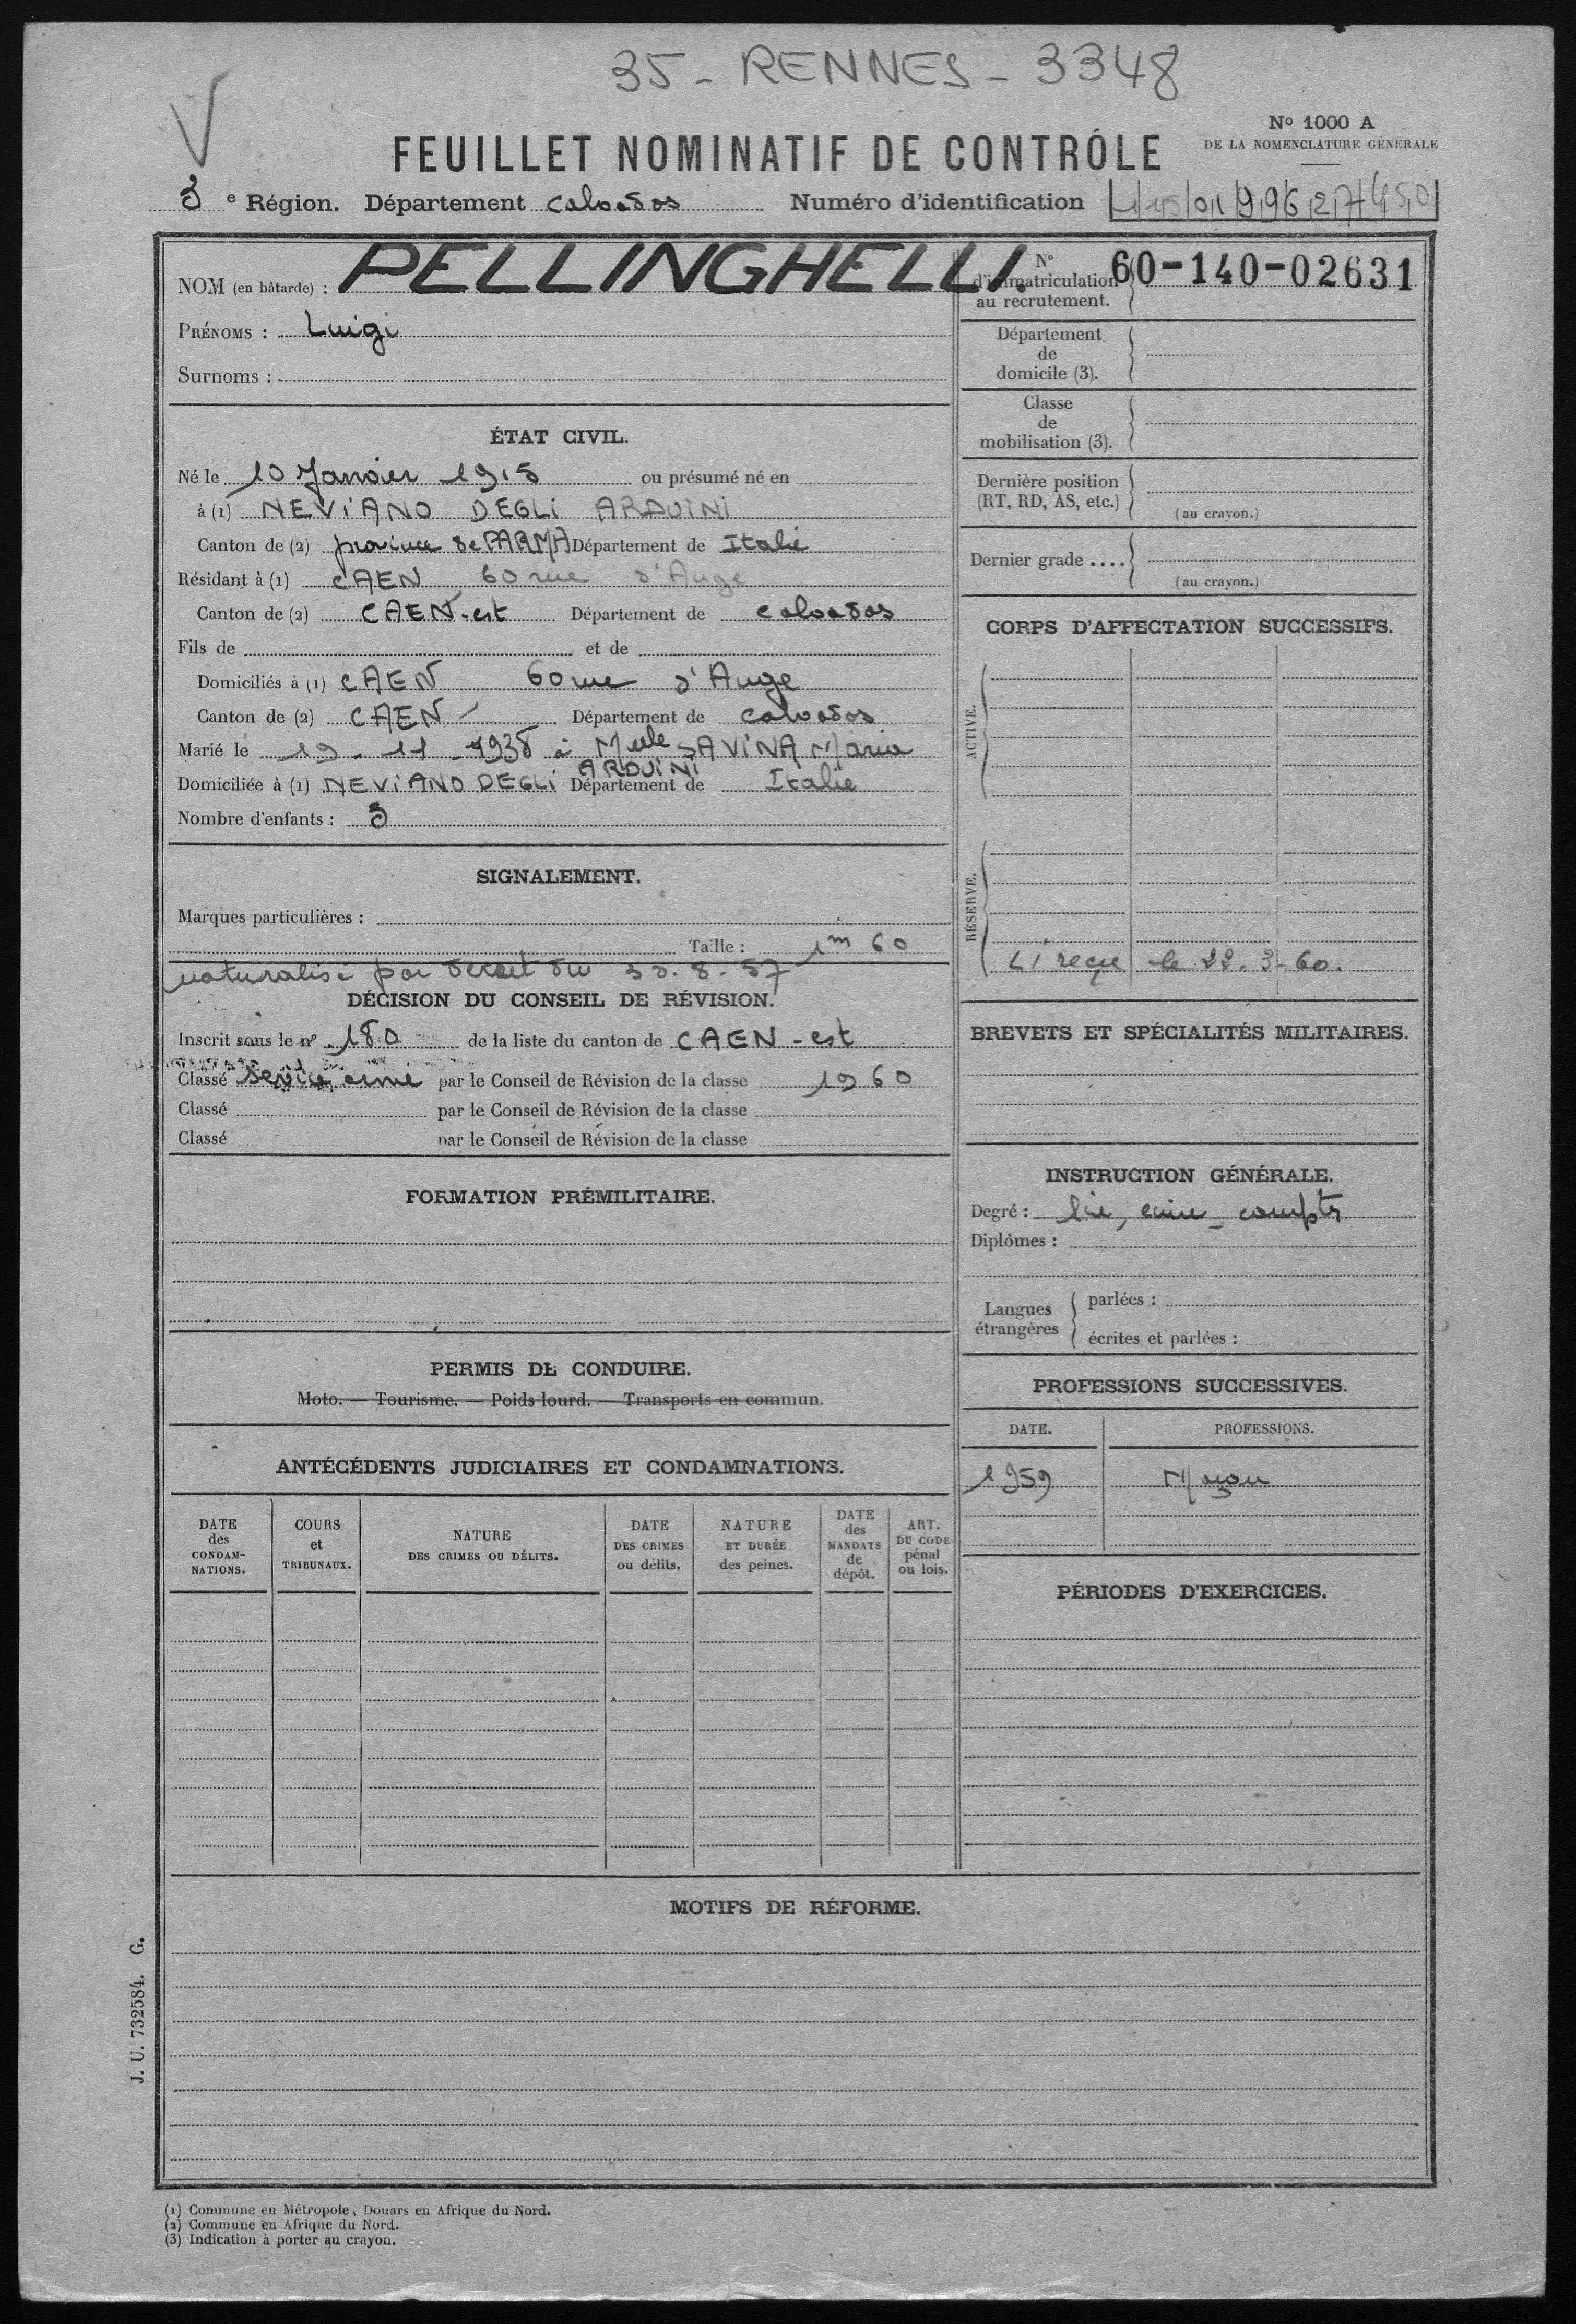 35 - RENNES - 3348
V
N° 1000 A
DE LA NOMENCLATURE GÉNÉRALE
FEUILLET NOMINATIF DE CONTRÔLE
3 e Région. Département Calvados Numéro d'identification
NOM (en bâtarde) : PELLINGHELLI.
PRÉNOMS : Luigi
Surnoms :
ÉTAT CIVIL.
Né le 10 Janvier 1915 ou présumé né en
à (1) NEViANO DEGLi ARDUiNi
Canton de (2) province de PARMA Département de Italie
Résidant à (1) CAEN 60 rue d'Auge
Canton de (2) CAEN-est Département de Calvados
Fils de et de
Domiciliés à (1) CAEN 60 rue d'Auge
Canton de (2) CAEN - Département de Calvados
Marié le 19 - 11 - 1938 à Melle SAViNA Maria
Domiciliée à (1) NEViANO DEGLi ARDUiNi Département de Italie
Nombre d'enfants : 3
SIGNALEMENT.
Marques particulières :
Taille : 1m 60
naturalisé par décret du 30.8.57
DÉCISION DU CONSEIL DE RÉVISION.
Inscrit sous le n° 180 de la liste du canton de CAEN - est
Classé Service armé par le Conseil de Révision de la classe 1960
Classé par le Conseil de Révision de la classe
Classé par le Conseil de Révision de la classe
FORMATION PRÉMILITAIRE.
PERMIS DE CONDUIRE.
Moto. — Tourisme. — Poids lourd. — Transports en commun.
ANTÉCÉDENTS JUDICIAIRES ET CONDAMNATIONS.
DATE des CONDAM-NATIONS.
COURS et TRIBUNAUX.
NATURE DES CRIMES OU DÉLITS.
DATE DES CRIMES ou délits.
NATURE ET DURÉE des peines.
DATE des MANDATS de dépôt.
ART. DU CODE pénal ou lois.
N° d'immatriculation au recrutement. 60-140-02631
Département de domicile (3).
Classe de mobilisation (3).
Dernière position (RT, RD, AS, etc.)
(au crayon.)
Dernier grade ....
(au crayon.)
CORPS D'AFFECTATION SUCCESSIFS.
ACTIVE.
RÉSERVE.
Li reçu le 22.3-60.
BREVETS ET SPÉCIALITÉS MILITAIRES.
INSTRUCTION GÉNÉRALE.
Degré : lire, écrire - compter
Diplômes :
Langues étrangères
parlées :
écrites et parlées :
PROFESSIONS SUCCESSIVES.
DATE. PROFESSIONS.
1959 Maçon
PÉRIODES D'EXERCICES.
MOTIFS DE RÉFORME.
J. U. 732584. G.
(1) Commune en Métropole, Douars en Afrique du Nord.
(2) Commune en Afrique du Nord.
(3) Indication à porter au crayon.